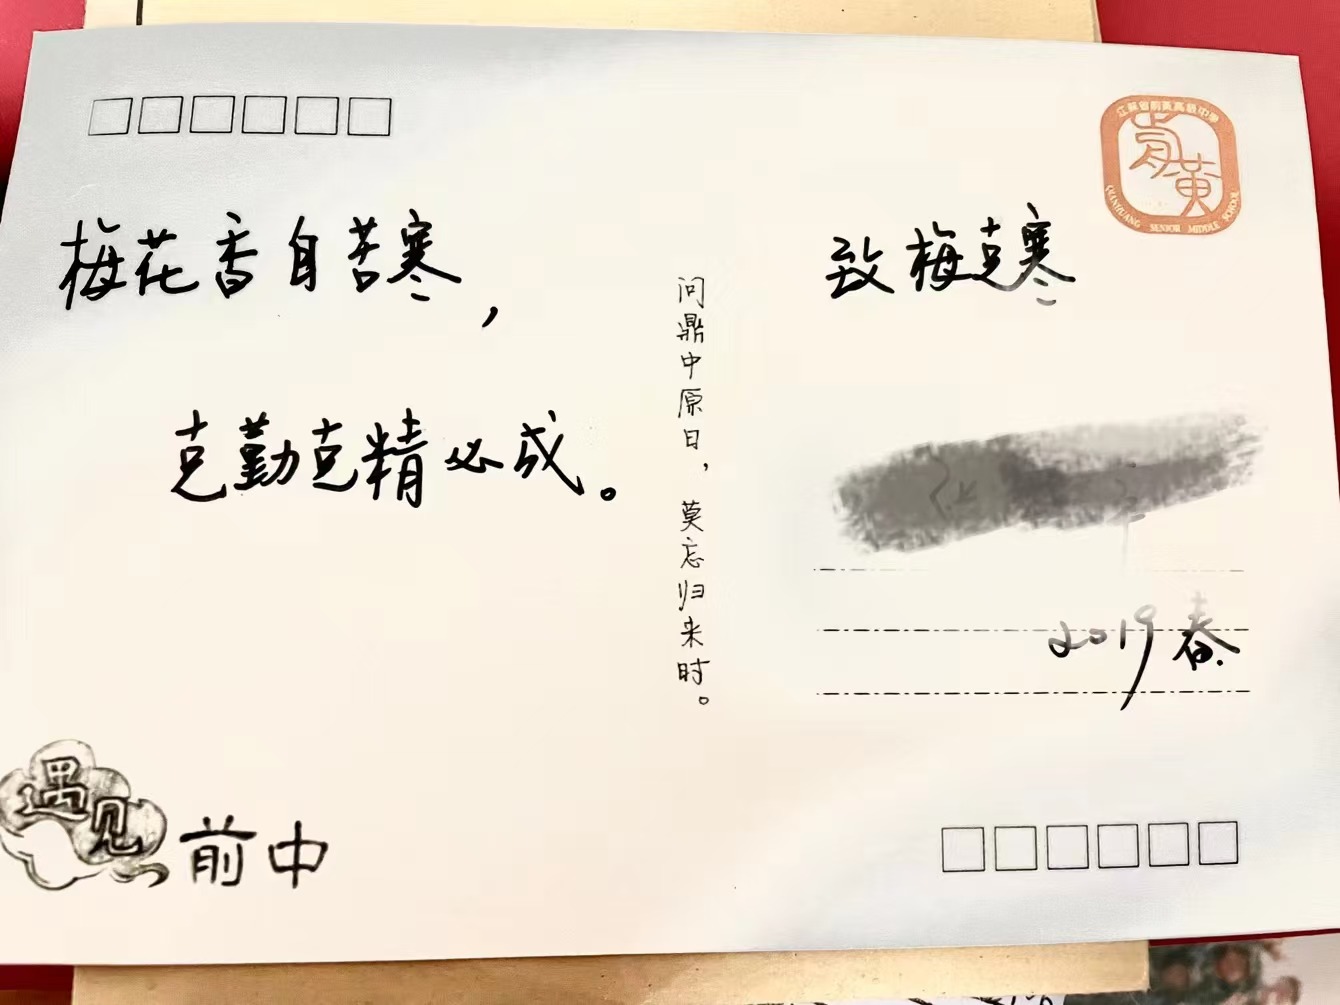 江苏省前黄高级中学
前黄
QIANHUANG SENIOR MIDDLE SCHOOL
梅花香自苦寒，
克勤克精必成。
问鼎中原日，莫忘归来时。
致梅克寒
2019春.
遇见
前中